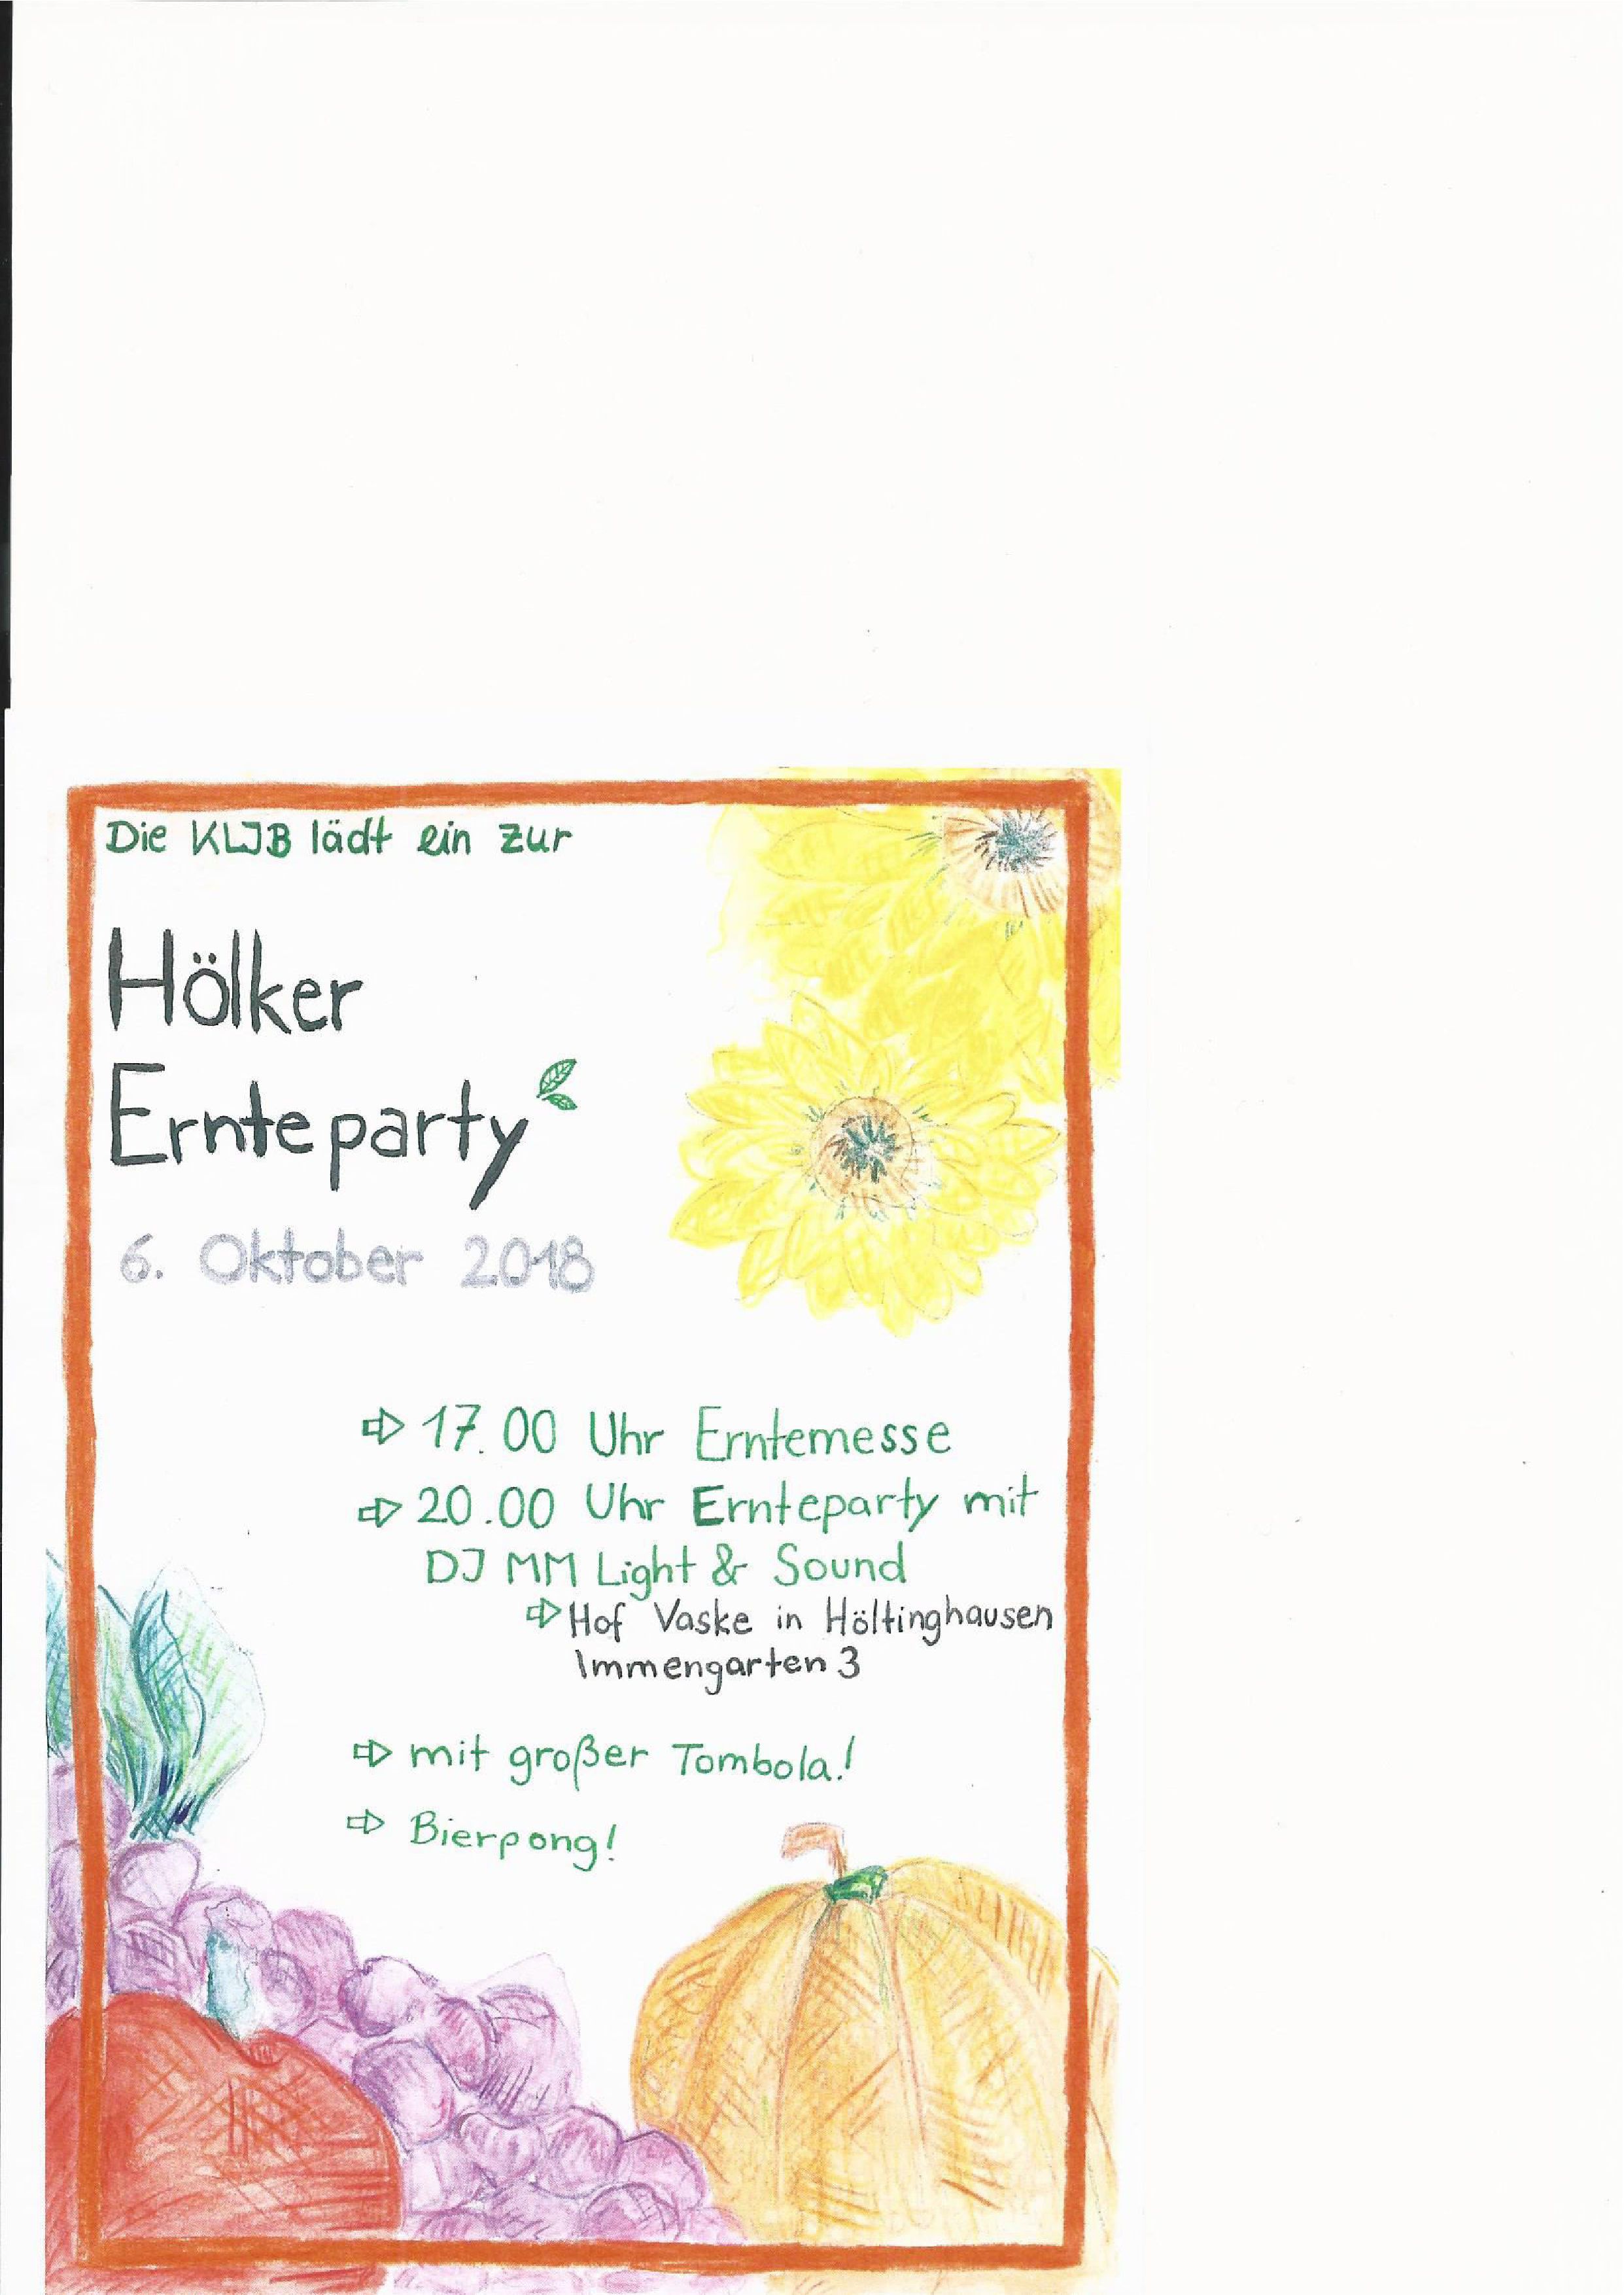 Die KLJB lädt ein zur
Hölker
Ernteparty
6. Oktober 2018
⇨ 17.00 Uhr Erntemesse
⇨ 20.00 Uhr Ernteparty mit
DJ MM Light & Sound
⇨ Hof Vaske in Höltinghausen
Immengarten 3
⇨ mit großer Tombola!
⇨ Bierpong!